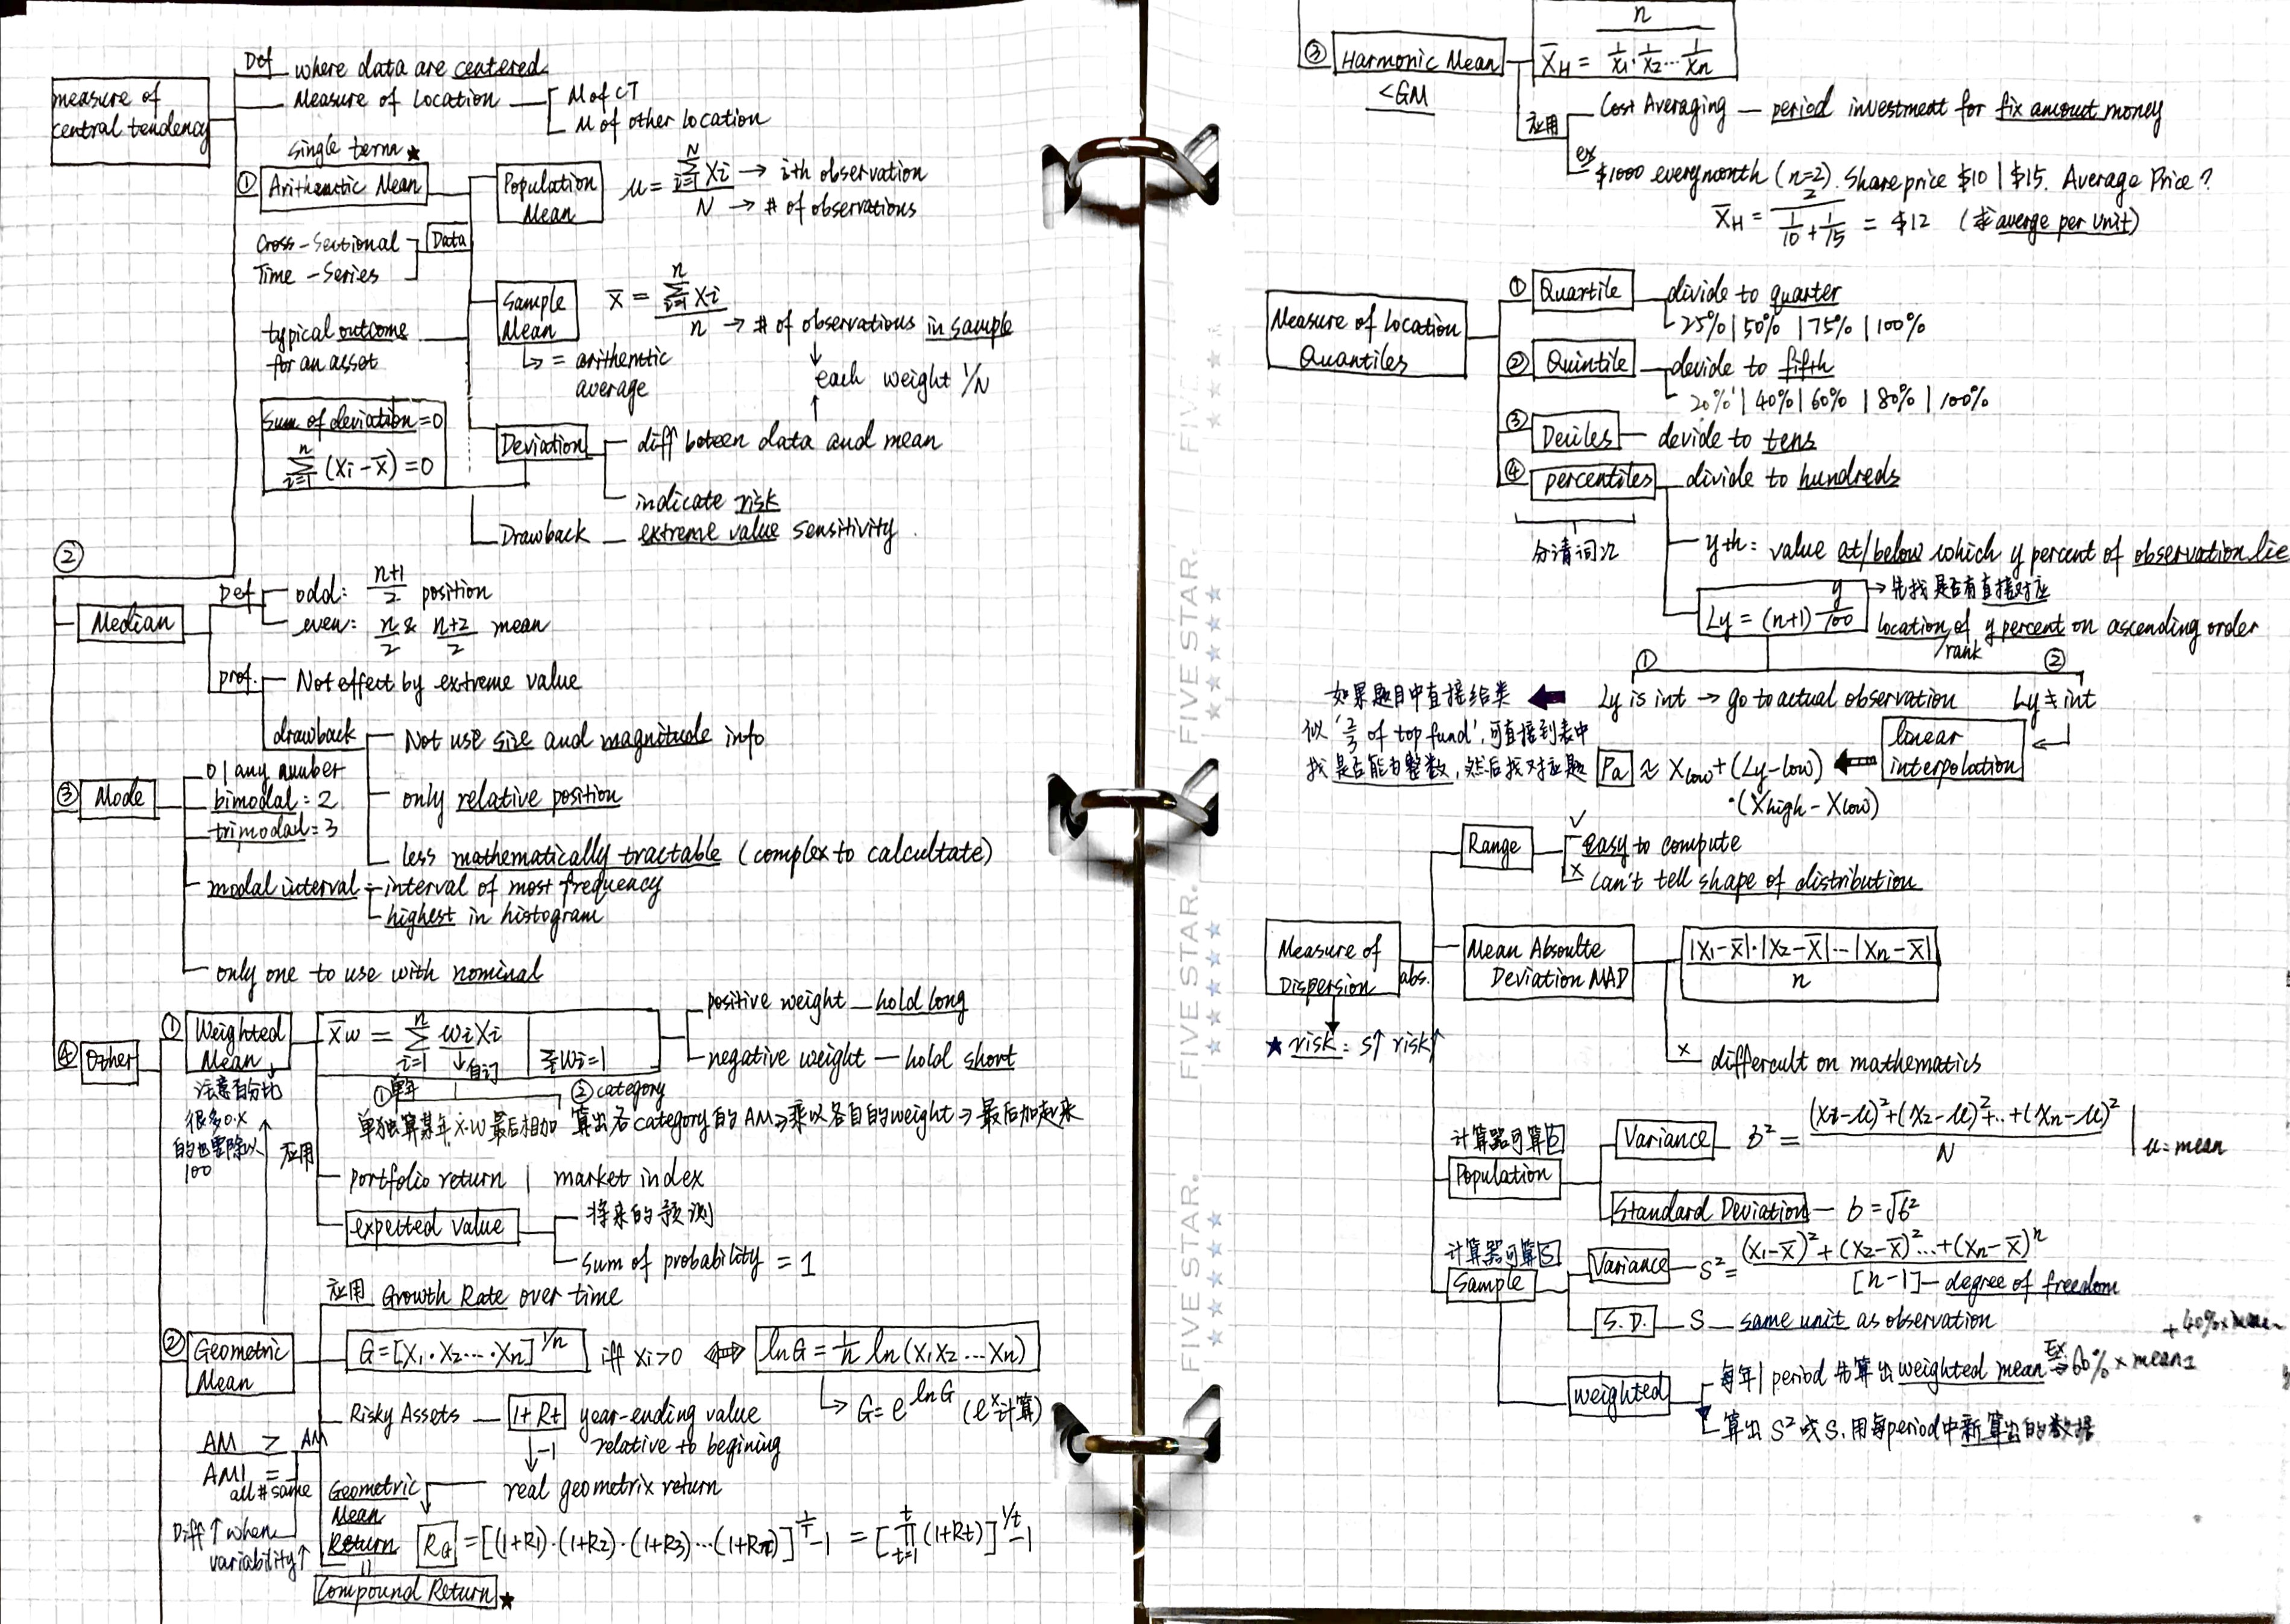 Def where data are centered
measure of central tendency
Measure of Location
M of CT
M of other location
single term ★
① Arithmetic Mean
Population Mean
μ = ∑_{i=1}^{N} Xi / N
→ ith observation
→ # of observations
Cross-Sectional
Time-Series
Data
Sample Mean
x̄ = ∑_{i=1}^{n} Xi / n → # of observations in sample
↳ = arithemtic average
each weight 1/N
typical outcome for an asset
Sum of deviation = 0
∑_{i=1}^{n} (Xi - x̄) = 0
Deviation
diff boteen data and mean
indicate risk
Drawback
extreme value sensitivity.
②
Median
Def
odd: (n+1)/2 position
even: n/2 & (n+2)/2 mean
prof.
Not effect by extreme value
drawback
Not use size and magnitude info
only relative position
less mathematically tractable (complex to calcultate)
③ Mode
0 | any number
bimodal = 2
trimodal = 3
modal interval
interval of most frequency
highest in histogram
only one to use with nominal
④ Other
① Weighted Mean
X̄w = ∑_{i=1}^{n} wi Xi
↓自订
∑wi = 1
positive weight — hold long
negative weight — hold short
注意百分比
很多0.x
的也要除以
100
①单年
单独算某年x·w最后相加
② category
算出各category的AM→乘以各自的weight→最后加起来
应用
portfolio return | market index
expected value
将来的预测
sum of probability = 1
② Geometric Mean
应用 Growth Rate over time
G = [X1·X2·...·Xn]^{1/n} iff Xi>0 ⟺ lnG = 1/n ln(X1X2...Xn)
↳ G = e^{lnG} (e^x计算)
Risky Assets
1+Rt year-ending value relative to begining
↓-1
real geometrix return
AM ≥ AM
AM1 =
all # same
Diff ↑ when variability ↑
Geometric Mean Return
RG = [(1+R1)·(1+R2)·(1+R3)···(1+RT)]^{1/T} -1 = [∏_{t=1}^{t} (1+Rt)]^{1/t} -1
Compound Return ★
③ Harmonic Mean
<GM
X̄H = n / (1/X1 · 1/X2 ··· 1/Xn)
应用
Cost Averaging — period investment for fix amount money
ex
$1000 every month (n=2). Share price $10 | $15. Average Price?
X̄H = 2 / (1/10 + 1/15) = $12 (求 averge per unit)
Measure of Location Quantiles
① Quartile
divide to quarter
25% | 50% | 75% | 100%
② Quintile
devide to fifth
20% | 40% | 60% | 80% | 100%
③ Deciles — devide to tens
④ percentiles — divide to hundreds
分清词汇
yth: value at/below which y percent of observation lie
Ly = (n+1) y/100
→先找是否有直接对应
location of y percent on ascending order
rank
①
Ly is int → go to actual observation
②
Ly ≠ int
如果题目中直接给类
似 '2/3 of top fund', 可直接到表中
找是否能为整数, 然后找对应题
linear interpolation
Pa ≈ Xlow + (Ly-low)
·(Xhigh - Xlow)
Measure of Dispersion
★ risk: s↑ risk↑
abs.
Range
✓ easy to compute
x can't tell shape of distribution
Mean Absoulte Deviation MAD
|X1-X̄|·|X2-X̄|···|Xn-X̄| / n
x differcult on mathematics
计算器可算σ
Population
Variance
σ² = (X1-μ)²+(X2-μ)²+...+(Xn-μ)² / N
μ=mean
Standard Deviation — σ = √σ²
计算器可算S
Sample
Variance — S² = (X1-X̄)²+(X2-X̄)²...+(Xn-X̄)^n / [n-1] — degree of freedom
S.D. — S — same unit as observation
weighted
每年 | period 先算出 weighted mean
Ex → 60% × mean1
+ 40% × mean
算出 S² 或 S, 用每period中新算出的数据
FIVE STAR.
FIVE STAR.
FIVE STAR.
FIVE STAR.